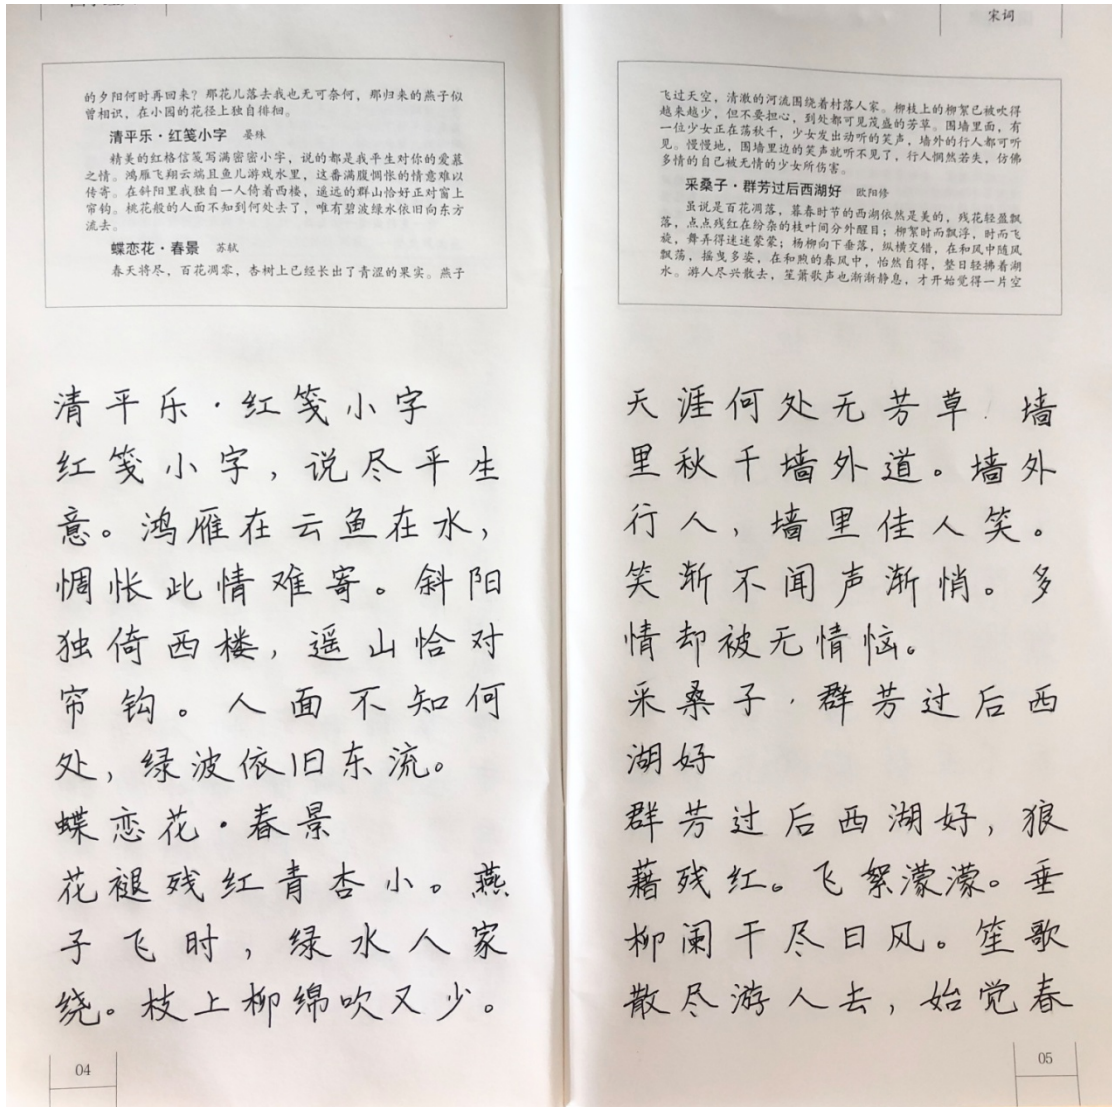 的夕阳何时再回来？那花儿落去我也无可奈何，那归来的燕子似
曾相识，在小园的花径上独自徘徊。
清平乐·红笺小字 晏殊
精美的红格信笺写满密密小字，说的都是我平生对你的爱慕
之情。鸿雁飞翔云端且鱼儿游戏水里，这番满腹惆怅的情意难以
传寄。在斜阳里我独自一人倚着西楼，遥远的群山恰好正对窗上
帘钩。桃花般的人面不知到何处去了，唯有碧波绿水依旧向东方
流去。
蝶恋花·春景 苏轼
春天将尽，百花凋零，杏树上已经长出了青涩的果实。燕子
清平乐·红笺小字
红笺小字，说尽平生
意。鸿雁在云鱼在水，
惆怅此情难寄。斜阳
独倚西楼，遥山恰对
帘钩。人面不知何
处，绿波依旧东流。
蝶恋花·春景
花褪残红青杏小。燕
子飞时，绿水人家
绕。枝上柳绵吹又少。
04
宋词
飞过天空，清澈的河流围绕着村落人家。柳枝上的柳絮已被吹得
越来越少，但不要担心，到处都可见茂盛的芳草。围墙里面，有
一位少女正在荡秋千，少女发出动听的笑声，墙外的行人都可听
见。慢慢地，围墙里边的笑声就听不见了，行人惘然若失，仿佛
多情的自己被无情的少女所伤害。
采桑子·群芳过后西湖好 欧阳修
虽说是百花凋落，暮春时节的西湖依然是美的，残花轻盈飘
落，点点残红在纷杂的枝叶间分外醒目；柳絮时而飘浮，时而飞
旋，舞弄得迷迷蒙蒙；杨柳向下垂落，纵横交错，在和风中随风
飘荡，摇曳多姿，在和煦的春风中，怡然自得，整日轻拂着湖
水。游人尽兴散去，笙箫歌声也渐渐静息，才开始觉得一片空
天涯何处无芳草！墙
里秋千墙外道。墙外
行人，墙里佳人笑。
笑渐不闻声渐悄。多
情却被无情恼。
采桑子·群芳过后西
湖好
群芳过后西湖好，狼
藉残红。飞絮濛濛。垂
柳阑干尽日风。笙歌
散尽游人去，始觉春
05